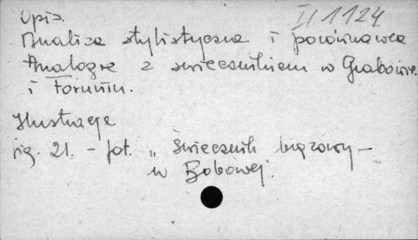 Opis. II 1124
Analiza stylistyczna i porównawcza
Analogie z świecznikiem w Grabowie
i Toruniu.
Ilustracje
ryc. 21. - fot. „ Świecznik brązowy -
w Bobowej.